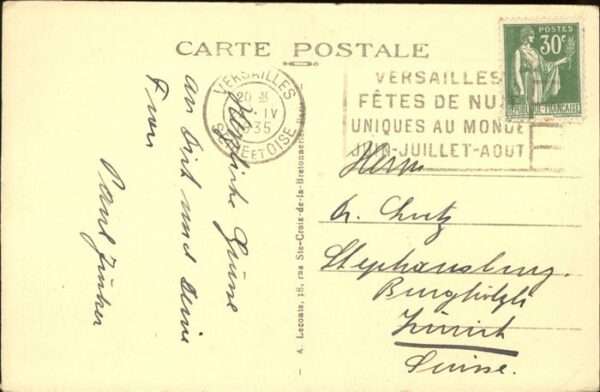 CARTE POSTALE
VERSAILLES
IV
1935
SEINE ET OISE
VERSAILLES
FÊTES DE NUIT
UNIQUES AU MONDE
JUIN-JUILLET-AOUT
POSTES
30c
FRANÇAISE
Herzliche Grüsse
an Dich und Deine
Frau
Paul
A. Leconte, 18, rue Ste-Croix-de-la-Bretonnerie
Herrn
Stephansburg.
Burghölzli
Zürich
Suisse.